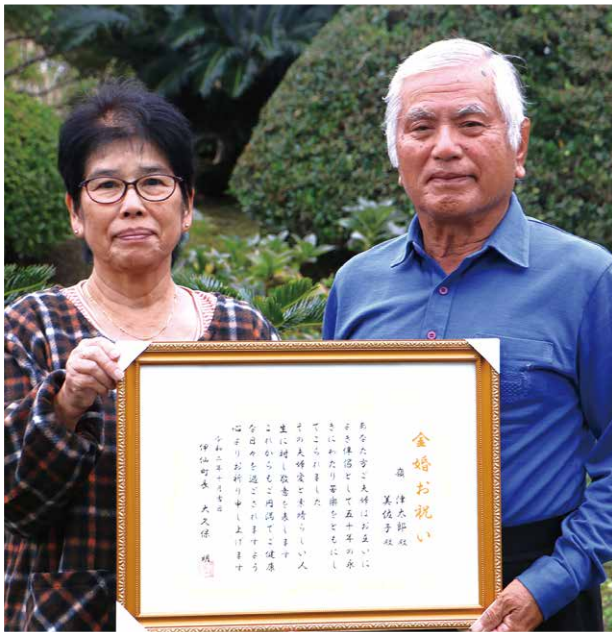 金婚お祝い
嶺 津太郎 様
美佐子 様
あなた方ご夫婦はお互いに
よき伴侶として五十年の永
きにわたり苦楽をともにし
てこられました
その夫婦愛と素晴らしい人
生に対し敬意を表します
これからもご円満でご健康
な日々を過ごされますよう
心よりお祈り申し上げます
令和二年十月吉日
伊仙町長 大久保 明